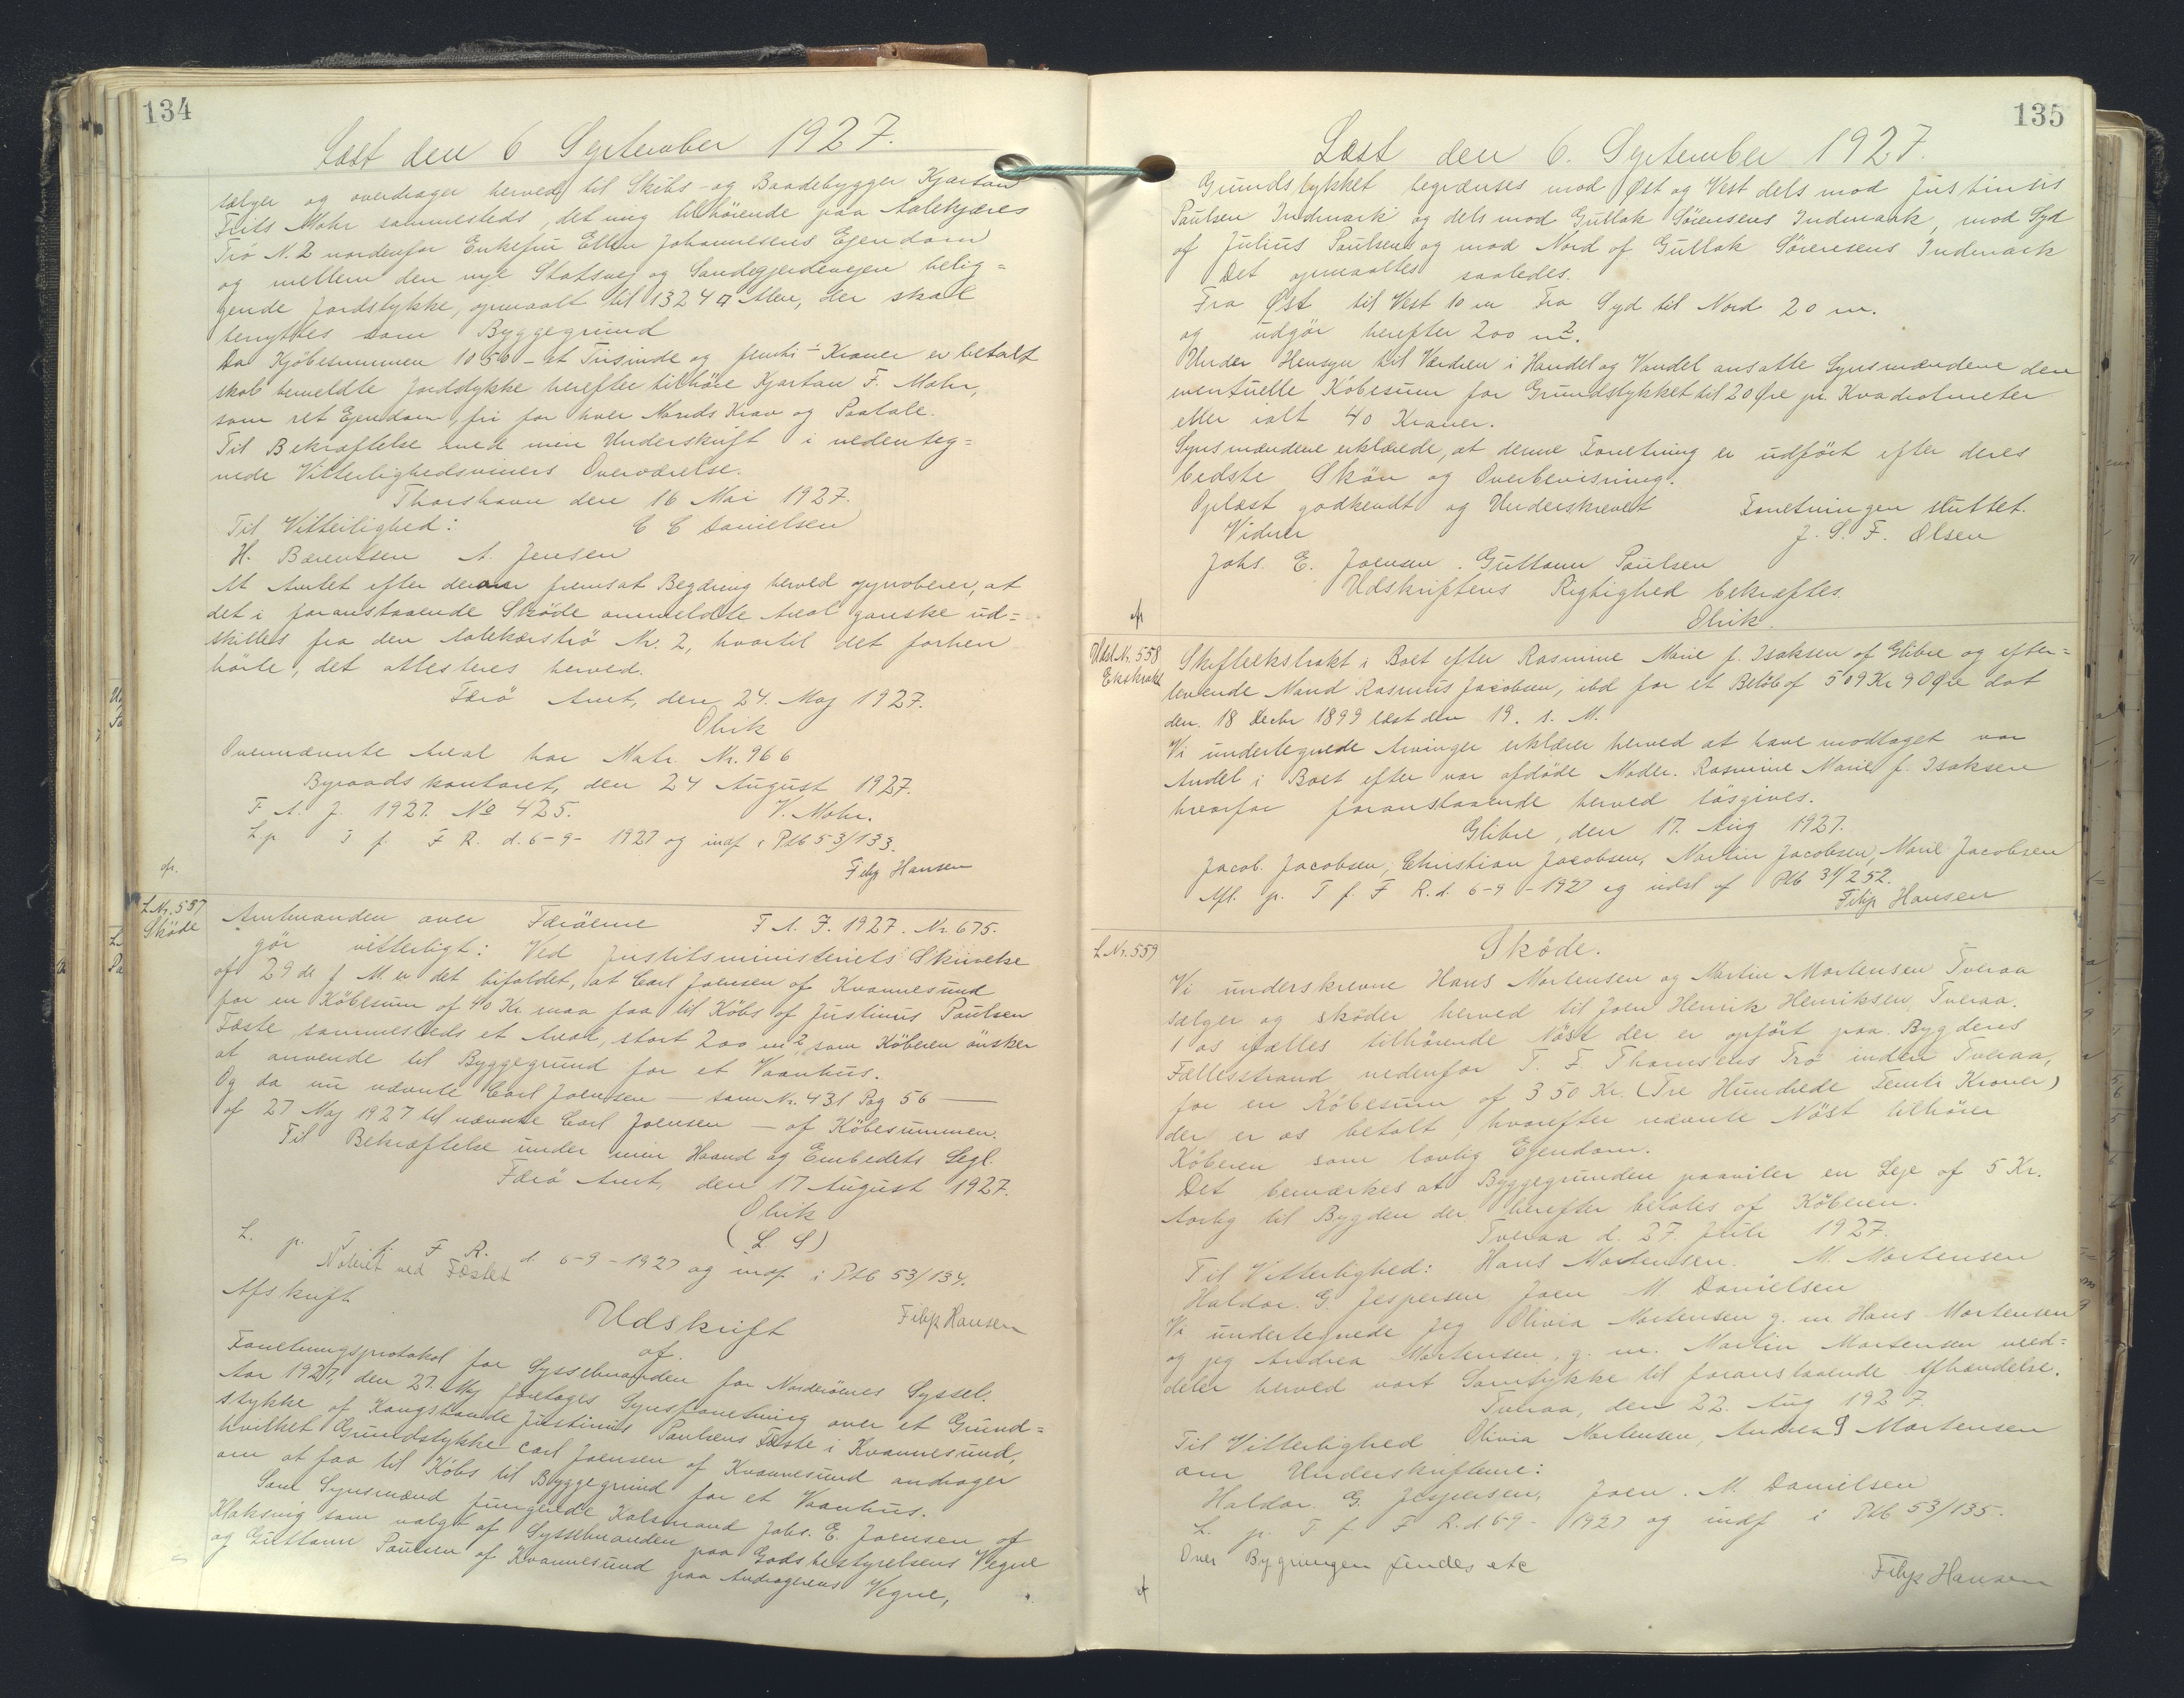 134
Læst den 6 September 1927.
sælger og overdrager herved til Skibs- og Baadebygger Kjartan
Frits Mohr sammesteds, det mig tilhörende paa Aalekjæres
Trö N. 2 nordenfor Enkefru Ellen Johannesens Ejendom
og mellem den nye Statsvej og Sandegjerdevejen belig=
gende Jordstykke, opmaalt til 1324 □ Alen, der skal
benyttes som Byggegrund
Da Kjöbesummen 1050 - et Tusinde og femti - Kroner er betalt
skal bemeldte Jordstykke herefter tilhöre Kjartan F. Mohr,
som ret Ejendom, fri for hver Mands Krav og Paatale.
Til Bekræftelse med min Underskrift i nedenteg=
nede Vitterlighedsvidners Overværelse.
Thorshavn den 16 Mai 1927.
Til Vitterlighed: C C Danielsen
H. Bærentsen A. Jensen
At Amtet efter derom fremsat Begæring herved approberer, at
det i foranstaaende Sköde ommeldte Areal ganske ud=
skilles fra den Aalekærströ Nr. 2, hvortil det forhen
hörte, det attesteres herved.
Færö Amt, den 24. Maj 1927.
Olrik
Ovennævnte Areal har Matr. Nr. 966
Byraadskontoret, den 24 August 1927.
F. A. J. 1927. No 425. V. Mohr.
L. p T f F R. d. 6-9- 1927 og indf i Ptb 53/133.
Filip Hansen
L Nr. 557
Sköde
Amtmanden over Færöerne F A. J. 1927. Nr. 675.
gör vitterligt: Ved Justitsministeriets Skrivelse
af 29 de f M er det bifaldet, at Carl Joensen af Kvannesund
for en Köbesum af 40 Kr. maa faa til Köbs af Justinus Paulsen
Fæste sammesteds et Areal, stort 200 m2, som Köberen önsker
at anvende til Byggegrund for et Vaanhus.
Og da nu nævnte Carl Joensen — som Nr. 431 Pag 56 —
af 27 Maj 1927 til nævnte Carl Joensen — af Köbesummen.
Til Bekræftelse under min Haand og Embedets Segl.
Færö Amt, den 17 August 1927.
Olrik
(L S)
L. p. T. f. F R. d 6-9-1927 og indf i Ptb 53/134.
Noteret ved Fæstet
Filip Hansen
Afskrift
Udskrift
af
Forretningsprotokol for Sysselmanden for Norderöernes Syssel.
Aar 1927, den 27. Maj foretoges Synsforretning over et Grund=
stykke af Kongsbonde Justinus Paulsens Fæste i Kvannesund,
hvilket Grundstykke Carl Joensen af Kvannesund andrager
om at faa til Köbs til Byggegrund for et Vaanhus.
Som Synsmænd fungerede Kalsmand Johs. E. Joensen af
Klaksvig som valgt af Sysselmanden paa Godsbestyrelsens Vegne
og Guttorm Paulsen af Kvannesund paa Andragerens Vegne,
135
Læst den 6. September 1927.
Grundstykket begrænses mod Öst og Vest dels mod Justinus
Paulsen Indmark og dels mod Gullak Sörensens Indmark, mod Syd
af Julius Paulsens og mod Nord af Gullak Sörensens Indmark
Det opmaaltes saaledes.
Fra Öst til Vest 10 m Fra Syd til Nord 20 m.
og udgör herefter 200 m2.
Under Hensyn til Værdien i Handel og Vandel ansatte Synsmændene den
eventuelle Köbesum for Grundstykket til 20 Öre pr. Kvadratmeter
eller ialt 40 Kroner.
Synsmændene erklærede, at denne Forretning er udfört efter deres
bedste Skön og Overbevisning.
Oplæst godkendt og Underskrevet Forretningen sluttet.
Vidner J. S. F. Olsen
Johs. E. Joensen. Guttorm Paulsen
Udskriftens Rigtighed bekræftes.
Olrik.
Udsl. Nr. 558
Ekstrakt
Skifteekstrakt i Boet efter Rasmine Marie f. Isaksen af Glibre og efter=
levende Mand Rasmus Jacobsen, ibd for et Belöb af 509 Kr 90 Öre dat
den. 18 Decbr 1899 læst den 19. s. M.
Vi undertegnede Arvinger erklærer herved at have modtaget vor
Andel i Boet efter vor afdöde Moder. Rasmine Marie f. Isaksen
hvorfor foranstaaende herved lösgives.
Glibre, den 17. Aug 1927.
Jacob. Jacobsen, Christian Jacobsen, Martin Jacobsen, Marie Jacobsen
Afl. p. T f. F R. d. 6-9-1927 og udsl af Ptb 31/252.
Filip Hansen
L Nr. 559
Sköde.
Vi underskrevne Hans Mortensen og Martin Mortensen Tveraa
sælger og sköder herved til Joen Henrik Henriksen, Tveraa.
1 os fælles tilhörende Nöst der er opfört paa Bygdens
Fællesstrand nedenfor T. F. Thomsens Trö inden Tveraa,
for en Köbesum af 350 Kr. (Tre Hundrede Femti Kroner)
der er os betalt, hvorefter nævnte Nöst tilhörer
Köberen som lovlig Ejendom.
Det bemærkes at Byggegrunden paahviler en Leje af 5 Kr.
Aarlig til Bygden der herefter betales af Köberen.
Tveraa d. 27. Juli 1927.
Til Vitterlighed: Hans Mortensen. M. Mortensen
Haldor. G. Jespersen Joen M Danielsen
Vi undertegnede jeg Olivia Mortensen g. m. Hans Mortensen
og jeg Andrea Mortensen, g. m. Martin Mortensen med=
deler herved vort Samtykke til foranstaaende Afhændelse.
Tveraa, den 22. Aug 1927.
Til Vitterlighed Olivia Mortensen, Andrea S Mortensen
om Underskrifterne:
Haldor. G. Jespersen, Joen. M. Danielsen
L. p. T f. F R. d. 6-9- 1927 og indf i Ptb 53/135.
Over Bygningen findes etc
Filip Hansen